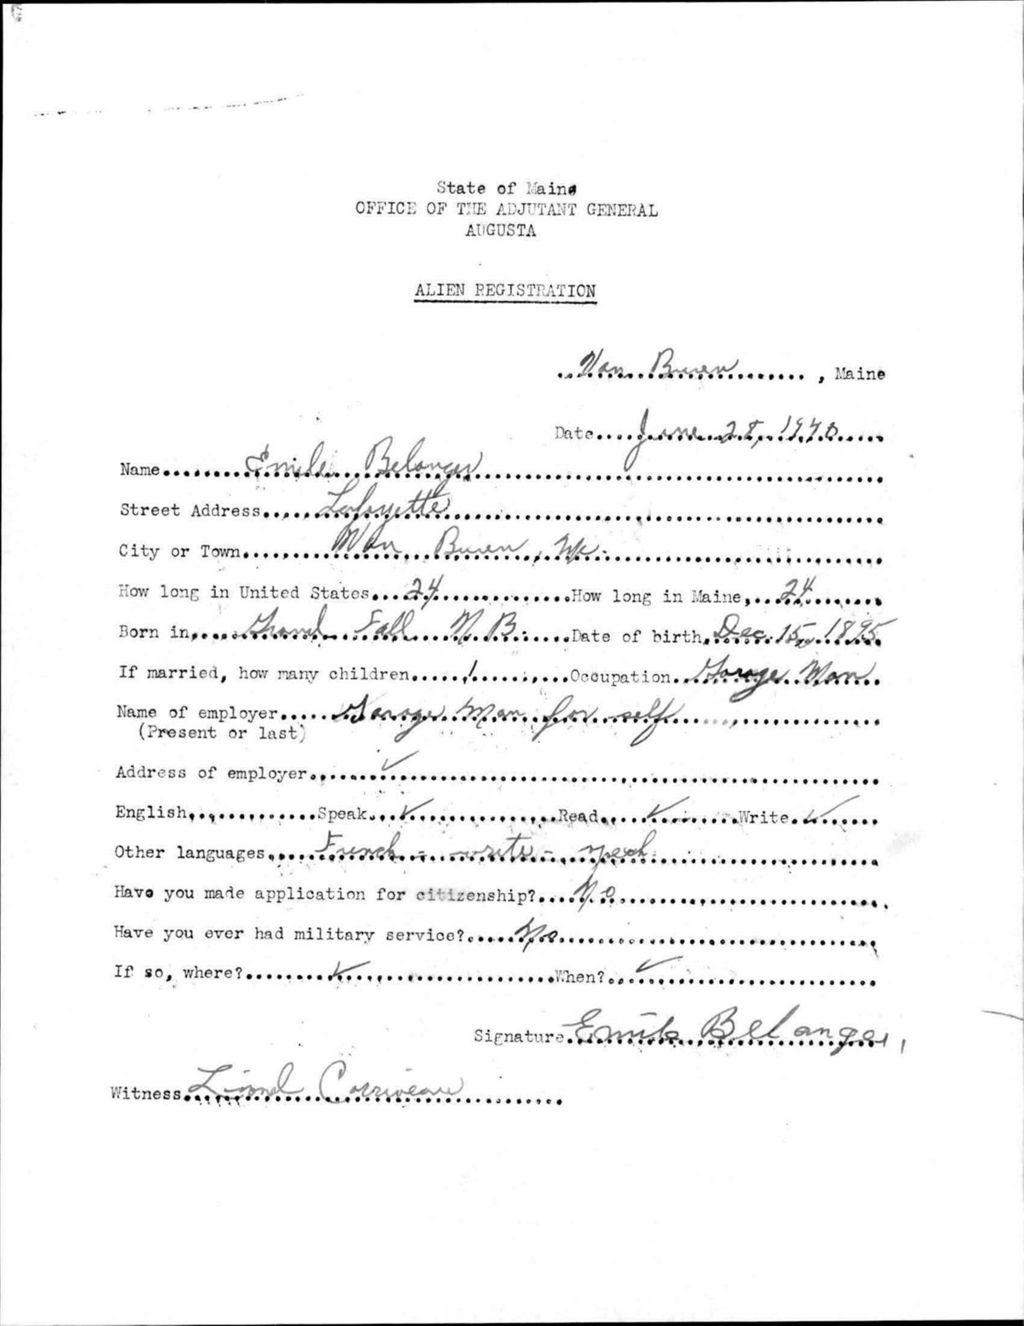 State of Maine
OFFICE OF THE ADJUTANT GENERAL
AUGUSTA
ALIEN REGISTRATION
Van Buren, Maine
Date June 28, 1940
Name Emile Belanger
Street Address Lafayette
City or Town Van Buren, Me.
How long in United States 24 How long in Maine 24
Born in Grand Fall N B. Date of birth Dec 15, 1895
If married, how many children 1 Occupation Garage Man
Name of employer Garage Man for self
(Present or last)
Address of employer ✓
English Speak ✓ Read ✓ Write ✓
Other languages French - write - speak
Have you made application for citizenship? No
Have you ever had military service? No
If so, where? ✓ When? ✓
Signature Emile Belanger
Witness Lionel Corriveau